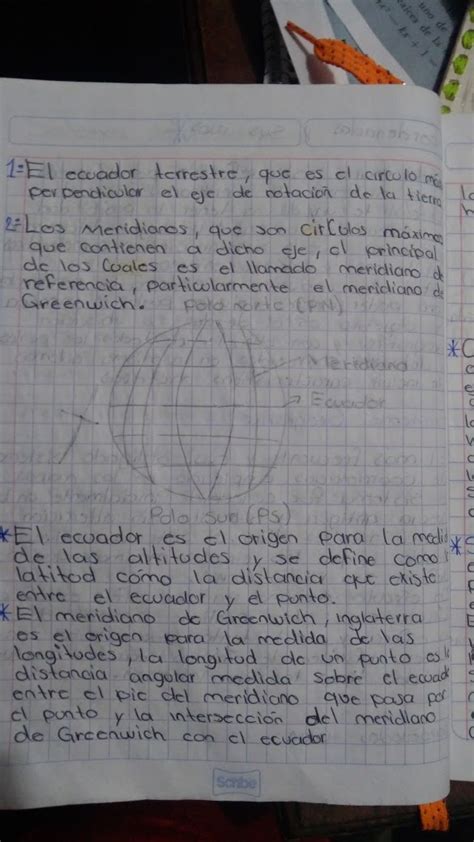 1=El ecuador terrestre, que es el circulo
perpendicular el eje de rotación de la tierra
2=Los Meridianos, que son circulos máximos
que contienen a dicho eje, el principal
de los Cuales es el llamado meridiano de
referencia, particularmente el meridiano de
Greenwich.
Polo norte (PN)
Meridiano
Ecuador
Polo Sur (PS)
*El ecuador es el origen para la medi
de las altitudes y se define como
latitud como la distancia que existe
entre el ecuador y el punto.
*El meridiano de Greenwich, inglaterra
es el origen para la medida de las
longitudes, la longitud de un punto es la
distancia angular medida sobre el ecuad
entre el pie del meridiano que pasa por
el punto y la intersección del meridiano
de Greenwich con el ecuador
Scribe